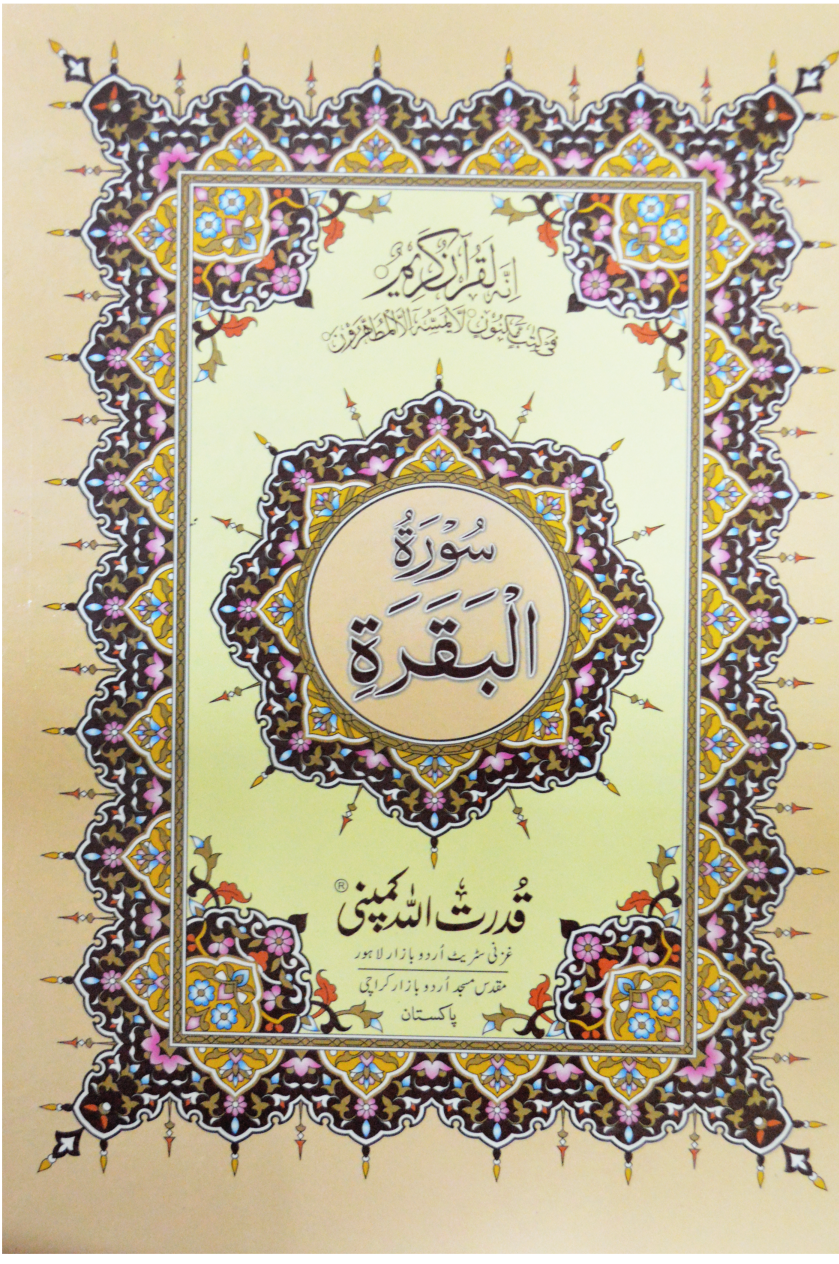 اِنَّهٗ لَقُرْاٰنٌ كَرِيْمٌ
فِيْ كِتٰبٍ مَّكْنُوْنٍ لَّا يَمَسُّهٗٓ اِلَّا الْمُطَهَّرُوْنَ
سُوْرَةُ
الْبَقَرَةِ
قُدرت اللہ کمپنی ®
غزنی سٹریٹ اُردو بازار لاہور
مقدس مسجد اُردو بازار کراچی
پاکستان